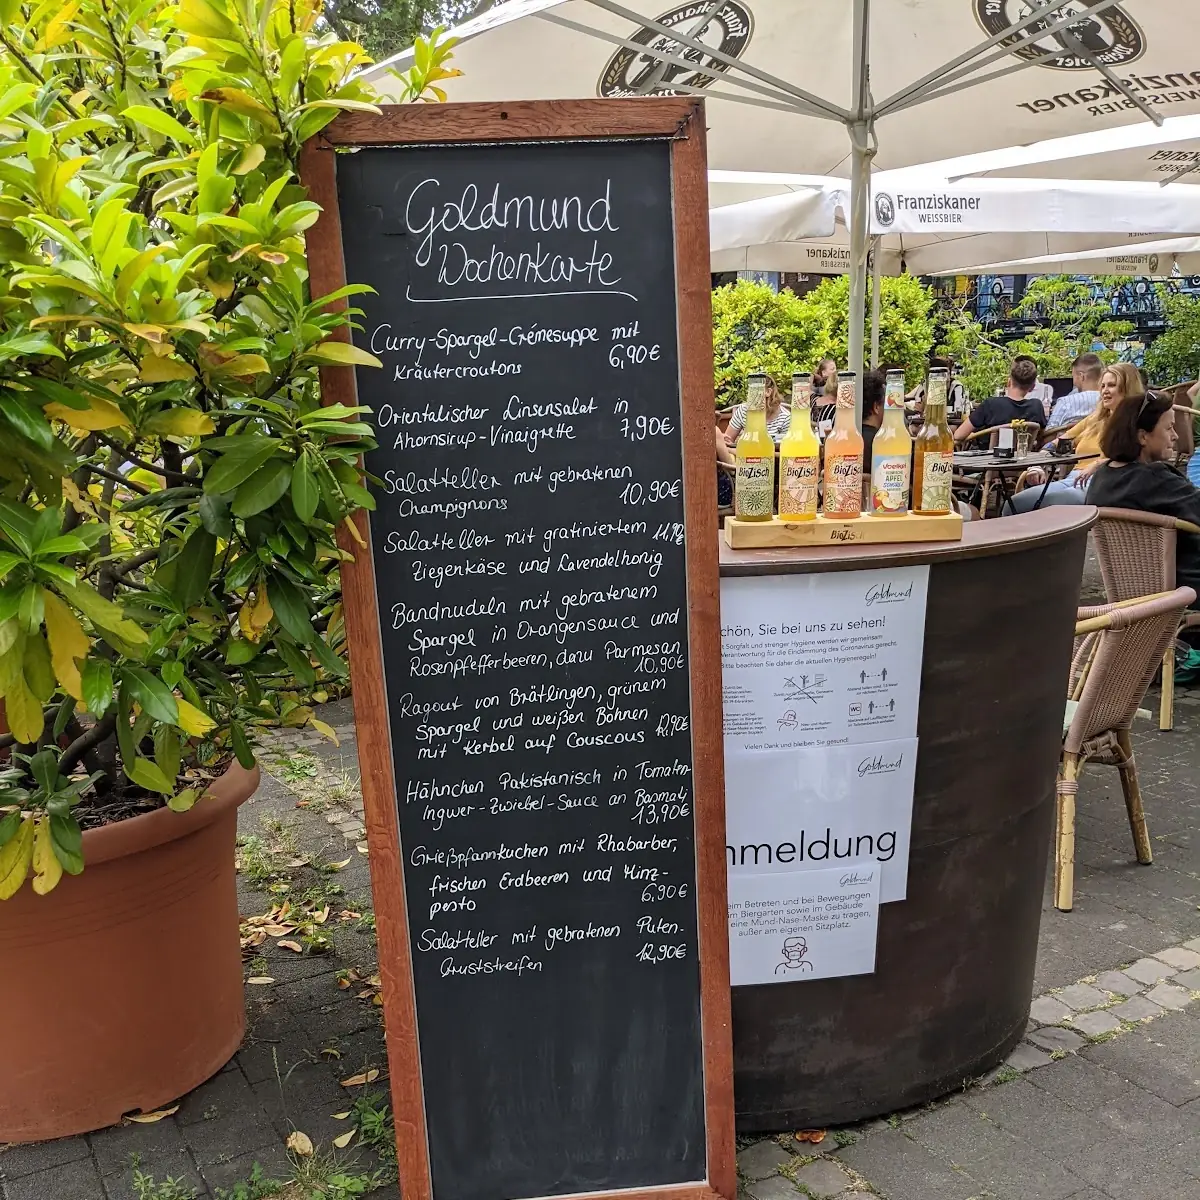 Goldmund
Wochenkarte
Curry-Spargel-Crémesuppe mit
Kräutercroutons 6,90€
Orientalischer Linsensalat in
Ahornsirup-Vinaigrette 7,90€
Salatteller mit gebratenen
Champignons 10,90€
Salatteller mit gratiniertem 11,90
Ziegenkäse und Lavendelhonig
Bandnudeln mit gebratenem
Spargel in Orangensauce und
Rosenpfefferbeeren, dazu Parmesan
10,90€
Ragout von Brätlingen, grünem
Spargel und weißen Bohnen
mit Kerbel auf Couscous 12,90€
Hähnchen Pakistanisch in Tomaten-
Ingwer-Zwiebel-Sauce an Basmati
13,90€
Grießpfannkuchen mit Rhabarber,
frischen Erdbeeren und Minz-
pesto 6,90€
Salatteller mit gebratenen Puten-
bruststreifen 12,90€
Franziskaner
WEISSBIER
Franziskaner
WEISSBIER
BioZisch
BioZisch
BioZisc
Voelkel
APFEL
SCHORLE
BioZis
BioZisch
Goldmund
chön, Sie bei uns zu sehen!
t Sorgfalt und strenger Hygiene werden wir gemeinsam
Verantwortung für die Eindämmung des Coronavirus gerecht.
Bitte beachten Sie daher die aktuellen Hygieneregeln!
WC
Vielen Dank und bleiben Sie gesund!
Goldmund
nmeldung
Goldmund
eim Betreten und bei Bewegungen
im Biergarten sowie im Gebäude
eine Mund-Nase-Maske zu tragen,
außer am eigenen Sitzplatz.